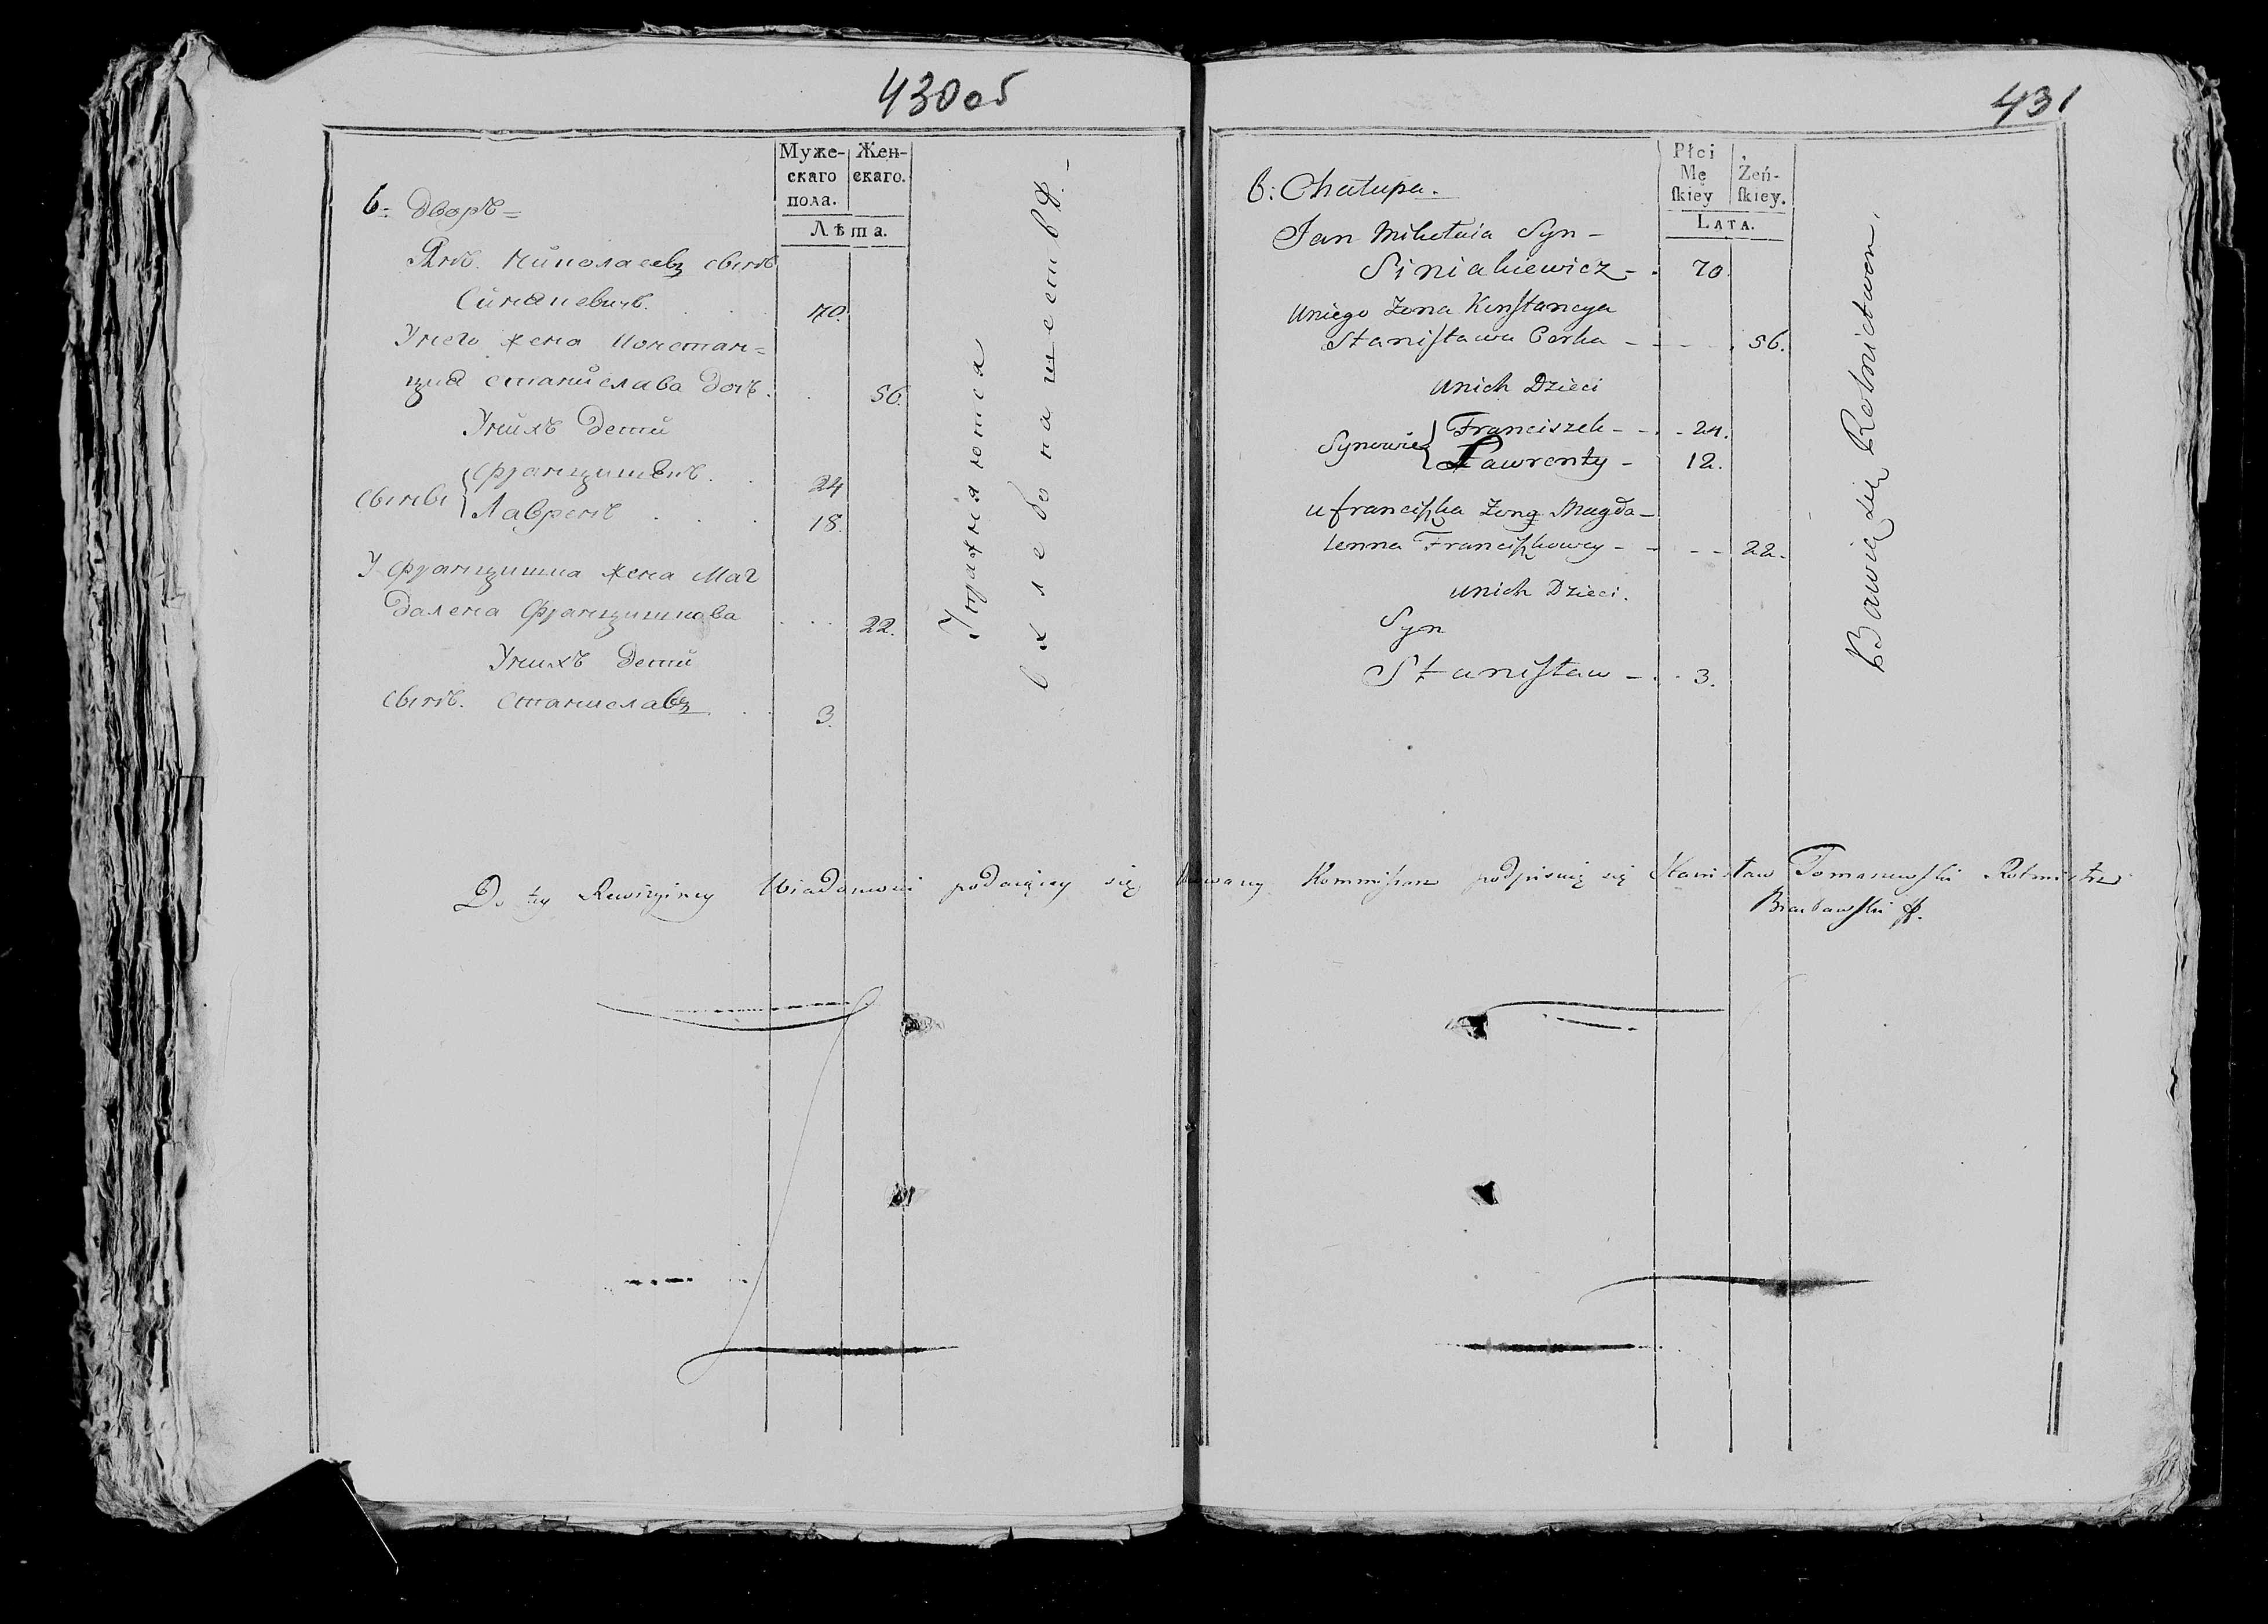 430 об
Муже- Жен-
скаго скаго.
пола.
Лѣта.
6. Дворъ
Янъ Николаевъ сынъ
Синяневичъ 70.
У него жена Констан=
ция Станислава дочь 56.
У нихъ дети
сынъвя
Францишекъ 24
Лавренъ 18.
У Францишка жена Маг
далена Францишкова 22.
У нихъ дети
сынъ Станиславъ 3.
Упражняются
въ хлебопашествѣ
431
Płci Żeń-
Mę ſkiey.
ſkiey
LATA.
6: Chałupa.
Jan Mikołaia Syn -
Siniakiewicz - 70.
U niego Żona Konſtancya
Staniſława Corka - 56.
U nich Dzieci
Synowie
Franciszek - 24.
Ławrenty - 12.
U franciſzka Żona Magda-
lenna Franciſzkowey - 22.
U nich Dzieci.
Syn
Staniſław - 3.
Bawią się Rolnictwem.
Do tey Rewizyiney Wiadomości podaiącey się Kommiſsar podpisuię się Stanisław Tomanowſki Rotmistrz
Bracławſki